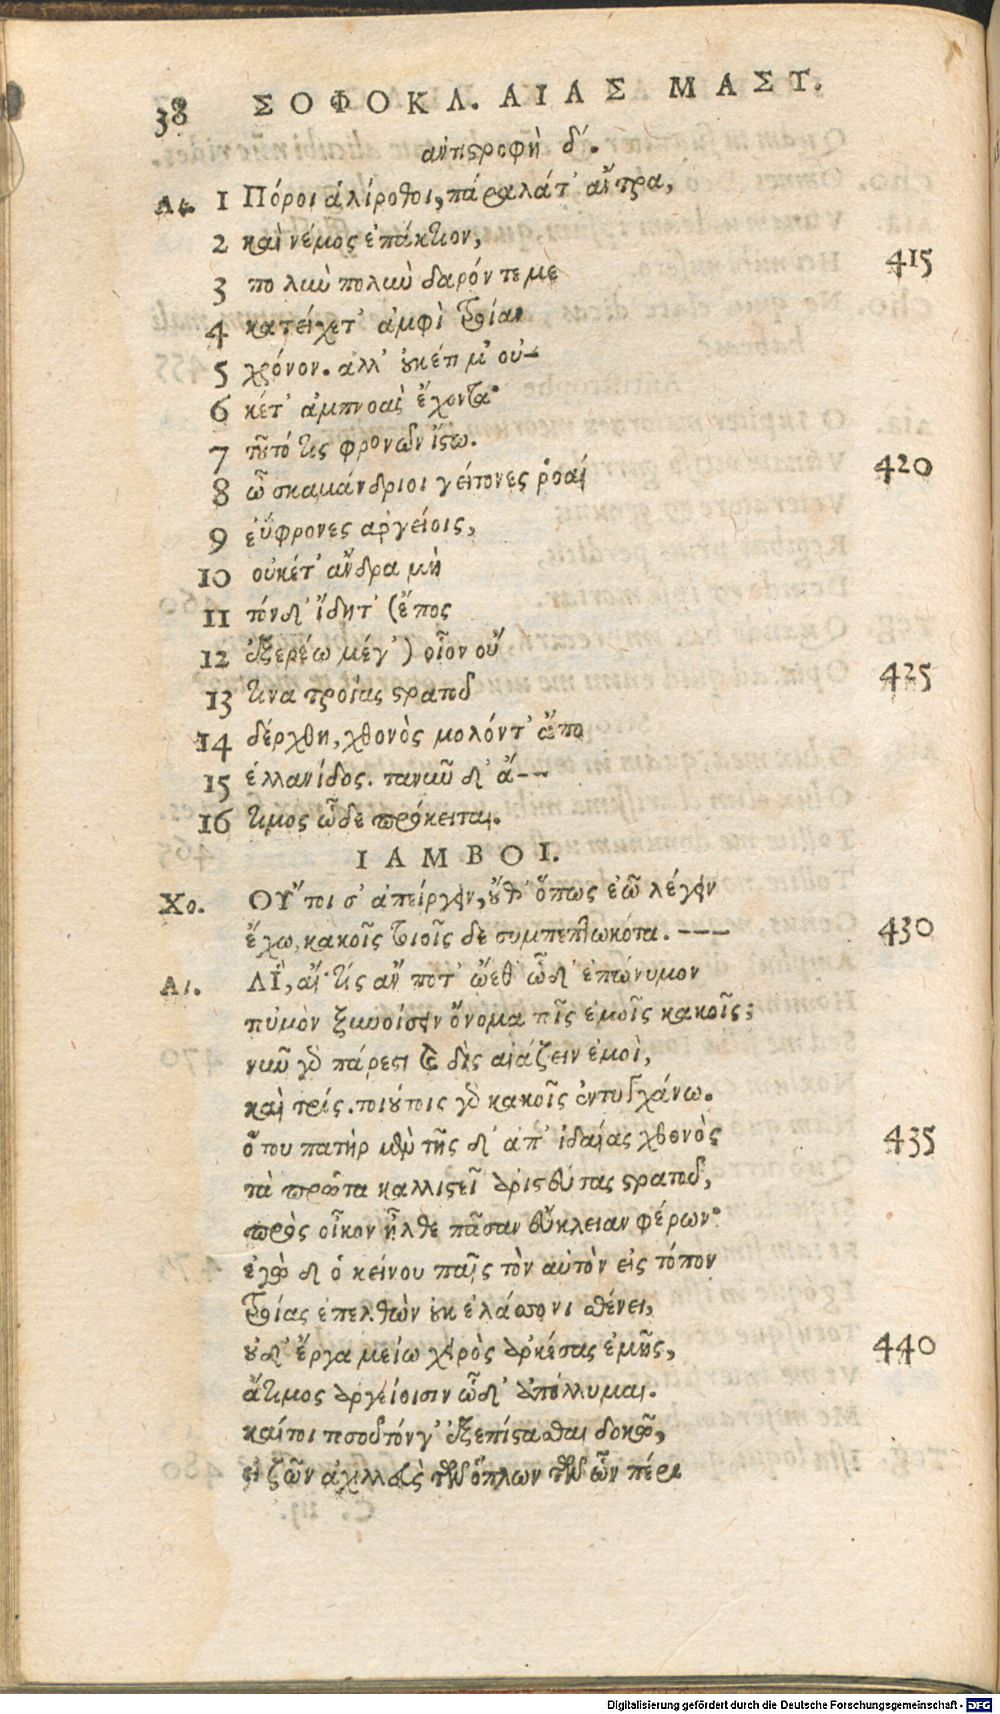 38 ΣΟΦΟΚΛ. ΑΙΑΣ ΜΑΣΤ.
ἀντιστροφὴ δ΄.
Αι. 1 Πόροι ἁλίροθοι, πάραλά τ' ἄντρα,
2 καὶ νέμος ἐπάκτιον, 415
3 πολιὺ πολιὺ δαρόν τε με
4 κατείχετ' ἀμφὶ τροίαν
5 χρόνον. ἀλλ' οὐκ ἔτι μ' οὐ-
6 κέτ' ἀμπνοὰς ἔχοντα·
7 τοῦτό τις φρονῶν ἴστω.
8 ὦ σκαμάνδριοι γείτονες ῥοαί 420
9 εὔφρονες ἀργείοις,
10 οὐκέτ' ἄνδρα μὴ
11 τόνδ' ἴδητ' (ἔπος
12 ἐξερέω μέγ') οἷον οὔ
13 τινα τροίας στρατοῦ 425
14 δέρχθη, χθονὸς μολόντ' ἄπο
15 ἑλλανίδος. τανῦν δ' ἄ--
16 τιμος ὧδε πρόκειται.
ΙΑΜΒΟΙ.
Χο. ΟΥ̓́τοι σ' ἀπείργειν, οὔθ' ὅπως ἐῶ λέγειν
ἔχω, κακοῖς τοιοῖσδε συμπεπτωκότα. --- 430
Αι. ΑἼ, αἴ· τίς ἄν ποτ' ᾤεθ' ὧδ' ἐπώνυμον
τοὐμὸν ξυνοίσειν ὄνομα τοῖς ἐμοῖς κακοῖς;
νῦν γὸ πάρεστι καὶ δὶς αἰάζειν ἐμοὶ,
καὶ τρίς. τοιούτοις γὸ κακοῖς ἐντυγχάνω.
ὅτου πατὴρ μὲν τῆς δ' ἀπ' ἰδαίας χθονὸς 435
τὰ πρῶτα καλλιστεῖ' ἀριστεύσας στρατοῦ,
πρὸς οἶκον ἦλθε πᾶσαν εὔκλειαν φέρων·
ἐγὼ δ' ὁ κείνου παῖς τὸν αὐτὸν εἰς τόπον
τροίας ἐπελθὼν οὐκ ἐλάσσονι σθένει,
οὐδ' ἔργα μείω χειρὸς ἀρκέσας ἐμῆς, 440
ἄτιμος ἀργείοισιν ὧδ' ἀπόλλυμαι.
καίτοι τοσοῦτόν γ' ἐξεπίστασθαι δοκῶ,
εἰ ζῶν ἀχιλλεὺς τῶν ὅπλων τῶν ὧν πέρι
Digitalisierung gefördert durch die Deutsche Forschungsgemeinschaft - DFG